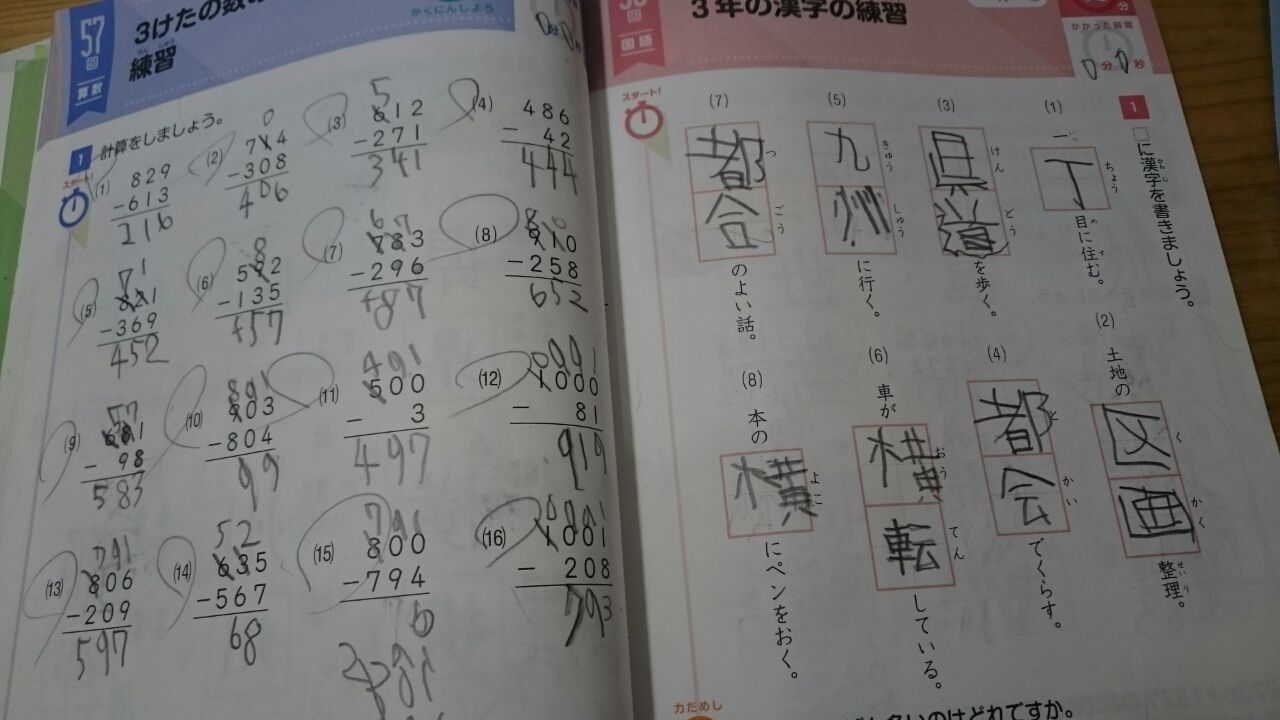 57回
算数
3けたの数
練習
かくにんしよう
1 計算をしましょう。
スタート!
(1) 829
-613
216
(2) 0
714
-308
406
(3) 5
612
-271
341
(4) 486
- 42
444
(5) 71
821
-369
452
(6) 8
592
-135
457
(7) 67
783
-296
487
(8) 80
910
-258
652
(9) 57
681
- 98
583
(10) 891
903
-804
99
(11) 491
500
- 3
497
(12) 0991
1000
- 81
919
(13) 791
806
-209
597
(14) 52
635
-567
68
(15) 791
800
-794
6
(16) 1001
- 208
793
回
国語
3年の漢字の練習
分
かかった時間
0分0秒
スタート!
1 □に漢字を書きましょう。
(1) 一丁目に住む。
(2) 土地の区画整理。
(3) 県道を歩く。
(4) 都会でくらす。
(5) 九州に行く。
(6) 車が横転している。
(7) 都合のよい話。
(8) 本の横にペンをおく。
力だめし
のはどれですか。